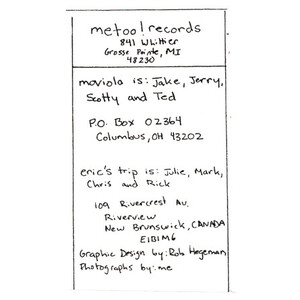 metoo! records
841 Whittier
Grosse Pointe, MI
48230
moviola is: Jake, Jerry,
Scotty and Ted
P.O. Box 02364
Columbus, OH 43202
eric's trip is: Julie, Mark,
Chris and Rick
109 Rivercrest Av.
Riverview
New Brunswick, CANADA
E1B1M6
Graphic Design by: Rob Hegeman
Photographs by: me